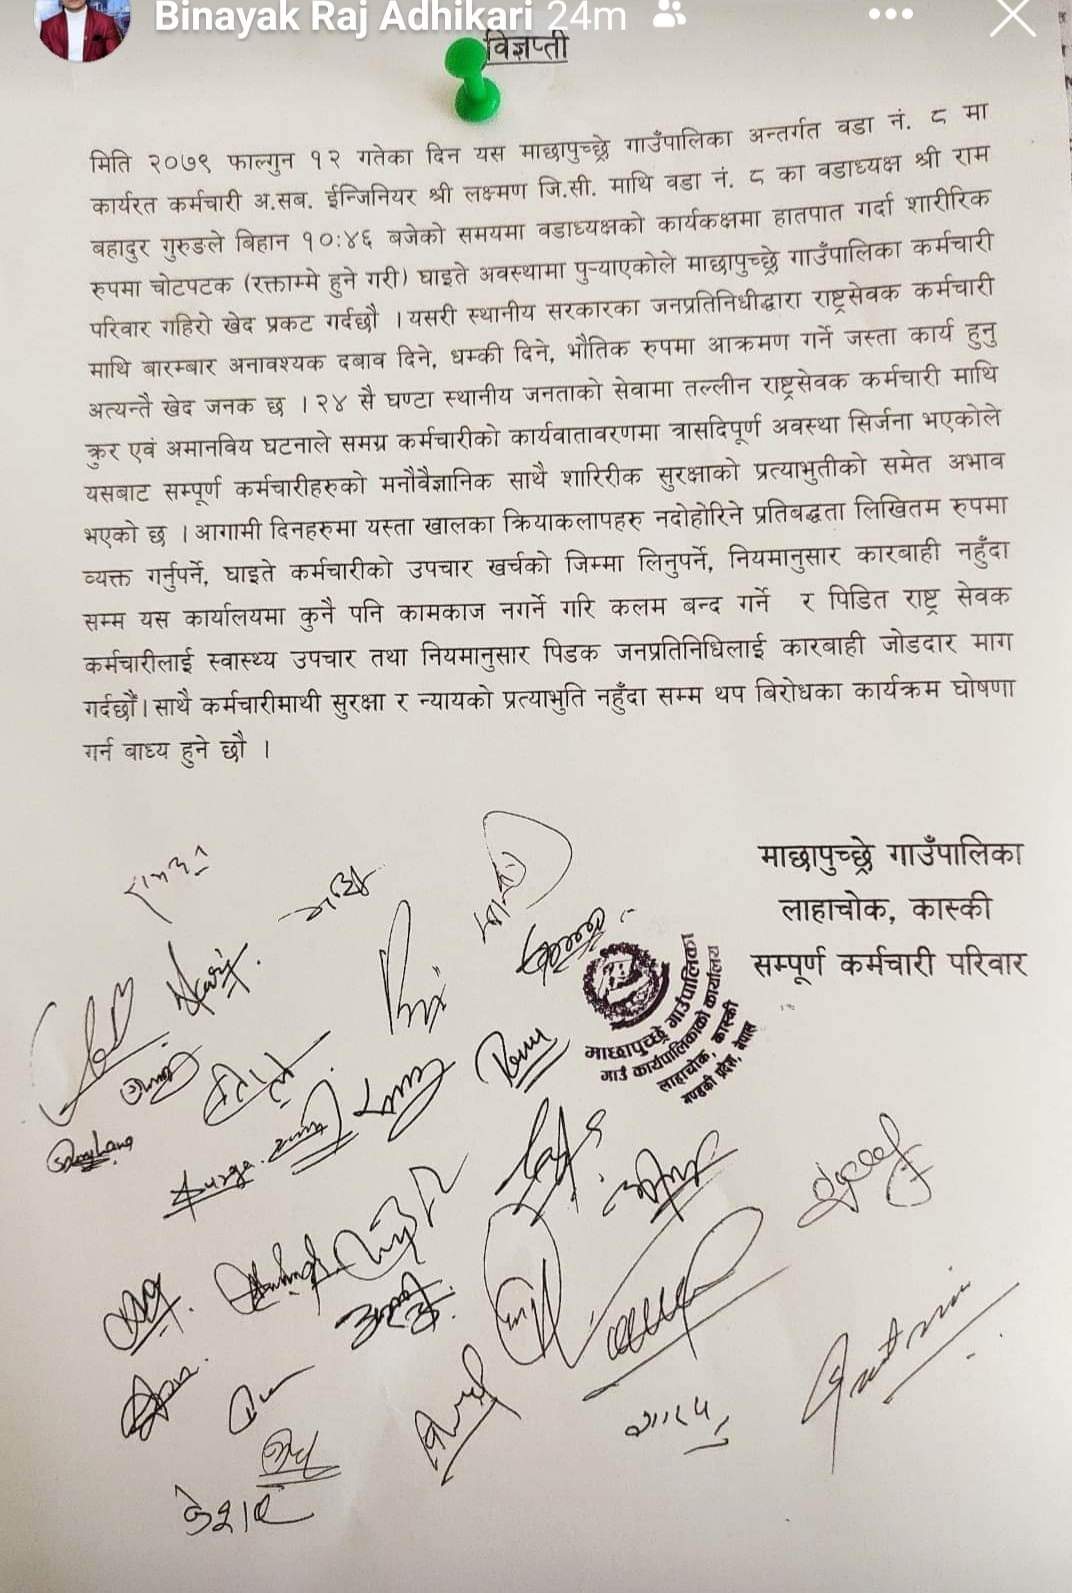 Binayak Raj Adhikari 24m
विज्ञप्ती
मिति २०७९ फाल्गुन १२ गतेका दिन यस माछापुच्छ्रे गाउँपालिका अन्तर्गत वडा नं. ८ मा
कार्यरत कर्मचारी अ.सब. ईन्जिनियर श्री लक्ष्मण जि.सी. माथि वडा नं. ८ का वडाध्यक्ष श्री राम
बहादुर गुरुङले बिहान १०:४६ बजेको समयमा वडाध्यक्षको कार्यकक्षमा हातपात गर्दा शारीरिक
रुपमा चोटपटक (रक्ताम्मे हुने गरी) घाइते अवस्थामा पुऱ्याएकोले माछापुच्छ्रे गाउँपालिका कर्मचारी
परिवार गहिरो खेद प्रकट गर्दछौ । यसरी स्थानीय सरकारका जनप्रतिनिधीद्धारा राष्ट्रसेवक कर्मचारी
माथि बारम्बार अनावश्यक दबाव दिने, धम्की दिने, भौतिक रुपमा आक्रमण गर्ने जस्ता कार्य हुनु
अत्यन्तै खेद जनक छ । २४ सै घण्टा स्थानीय जनताको सेवामा तल्लीन राष्ट्रसेवक कर्मचारी माथि
क्रुर एवं अमानविय घटनाले समग्र कर्मचारीको कार्यवातावरणमा त्रासदिपूर्ण अवस्था सिर्जना भएकोले
यसबाट सम्पूर्ण कर्मचारीहरुको मनौवैज्ञानिक साथै शारिरीक सुरक्षाको प्रत्याभुतीको समेत अभाव
भएको छ । आगामी दिनहरुमा यस्ता खालका क्रियाकलापहरु नदोहोरिने प्रतिबद्धता लिखितम रुपमा
व्यक्त गर्नुपर्ने, घाइते कर्मचारीको उपचार खर्चको जिम्मा लिनुपर्ने, नियमानुसार कारबाही नहुँदा
सम्म यस कार्यालयमा कुनै पनि कामकाज नगर्ने गरि कलम बन्द गर्ने र पिडित राष्ट्र सेवक
कर्मचारीलाई स्वास्थ्य उपचार तथा नियमानुसार पिडक जनप्रतिनिधिलाई कारबाही जोडदार माग
गर्दछौं। साथै कर्मचारीमाथी सुरक्षा र न्यायको प्रत्याभुति नहुँदा सम्म थप बिरोधका कार्यक्रम घोषणा
गर्न बाध्य हुने छौ ।
माछापुच्छ्रे गाउँपालिका
लाहाचोक, कास्की
सम्पूर्ण कर्मचारी परिवार
माछापुच्छ्रे गाउँपालिका
गाउँ कार्यपालिकाको कार्यालय
लाहाचोक, कास्की
गण्डकी प्रदेश, नेपाल